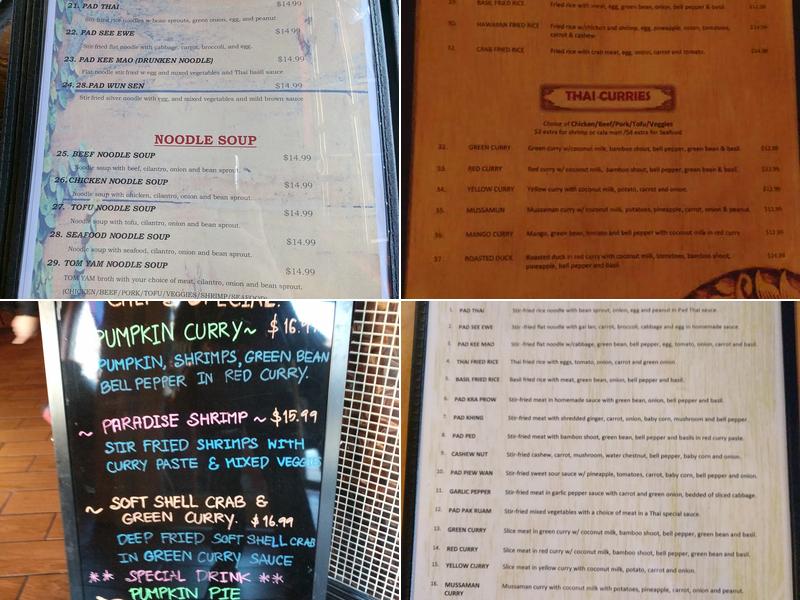 21. PAD THAI $14.99
Stir fried rice noodles w bean sprouts, green onion, egg, and peanut
22. PAD SEE EWE $14.99
Stir fried flat noodle with cabbage, carrot, broccoli, and egg.
23. PAD KEE MAO (DRUNKEN NOODLE) $14.99
Flat noodle stir fried w egg and mixed vegetables and Thai basil sauce
24.28.PAD WUN SEN $14.99
Stir fried silver noodle with egg, and mixed vegetables and mild brown sauce
NOODLE SOUP
25. BEEF NOODLE SOUP $14.99
Noodle soup with beef, cilantro, onion and bean sprout.
26.CHICKEN NOODLE SOUP $14.99
Noodle soup with chicken, cilantro, onion and bean sprout.
27. TOFU NOODLE SOUP $14.99
Noodle soup with tofu, cilantro, onion and bean sprout.
28. SEAFOOD NOODLE SOUP $14.99
Noodle soup with seafood, cilantro, onion and bean sprout.
29. TOM YAM NOODLE SOUP $14.99
TOM YAM broth with your choice of meat, cilantro, onion and bean sprout,
(CHICKEN/BEEF/PORK/TOFU/VEGGIES/SHRIMP/SEAFOOD)
BASIL FRIED RICE Fried rice with meat, egg, green bean, onion, bell pepper & basil.
30. HAWAIIAN FRIED RICE Fried rice w/chicken and shrimp, egg, pineapple, onion, tomatoes,
carrot & cashew
CRAB FRIED RICE Fried rice with crab meat, egg, onion, carrot and tomato.
THAI CURRIES
Choice of Chicken/Beef/Pork/Tofu/Veggies
$2 extra for shrimp or cala mari /$4 extra for Seafood
32. GREEN CURRY Green curry w/coconut milk, bamboo shout, bell pepper, green bean & basil. $12.99
33. RED CURRY Red curry w/coconut milk, bamboo shout, bell pepper, green bean & basil. $12.99
34. YELLOW CURRY Yellow curry with coconut milk, potato, carrot and onion. $12.99
35. MUSSAMUN Mussaman curry w/ coconut milk, potatoes, pineapple, carrot, onion & peanut. $12.99
36. MANGO CURRY Mango, green bean, tomato and bell pepper with coconut milk in red curry $12.99
37. ROASTED DUCK Roasted duck in red curry with coconut milk, tomatoes, bamboo shout,
pineapple, bell pepper and basil
CHEF'S SPECIAL.
PUMPKIN CURRY~ $16.99
PUMPKIN, SHRIMPS, GREEN BEAN
BELL PEPPER IN RED CURRY.
~ PARADISE SHRIMP ~ $15.99
STIR FRIED SHRIMPS WITH
CURRY PASTE & MIXED VEGGIES
~ SOFT SHELL CRAB &
GREEN CURRY. $16.99
DEEP FRIED SOFT SHELL CRAB
IN GREEN CURRY SAUCE
** SPECIAL DRINK **
PUMPKIN PIE
1. PAD THAI Stir-fried rice noodle with bean sprout, onion, egg and peanut in Pad Thai sauce.
2. PAD SEE EWE Stir-fried flat noodle with gai lan, carrot, broccoli, cabbage and egg in homemade sauce
3. PAD KEE MAO Stir-fried flat noodle w/cabbage, green bean, bell pepper, egg, tomato, onion, carrot and basil
4. THAI FRIED RICE Thai fried rice with eggs, tomato, onion, carrot and green onion
5. BASIL FRIED RICE Basil fried rice with meat, green bean, onion, bell pepper and basil.
6. PAD KRA PROW Stir-fried meat in homemade sauce with green bean, onion, bell pepper and basil.
7. PAD KHING Stir-fried meat with shredded ginger, carrot, onion, baby corn, mushroom and bell pepper.
8. PAD PED Stir-fried meat with bamboo shoot, green bean, bell pepper and basils in red curry paste.
9. CASHEW NUT Stir-fried cashew, carrot, mushroom, water chestnut, bell pepper, baby corn and onion.
10. PAD PIEW WAN Stir-fried sweet sour sauce w/ pineapple, tomatoes, carrot, baby corn, bell pepper and onion.
11. GARLIC PEPPER Stir-fried meat in garlic pepper sauce with carrot and green onion, bedded of sliced cabbage.
12. PAD PAK RUAM Stir-fried mixed vegetables with a choice of meat in a Thai special sauce.
13. GREEN CURRY Slice meat in green curry w/ coconut milk, bamboo shoot, bell pepper, green bean and basil.
14. RED CURRY Slice meat in red curry w/ coconut milk, bamboo shoot, bell pepper, green bean and basil.
15. YELLOW CURRY Slice meat in yellow curry with coconut milk, potato, carrot and onion.
16. MUSSAMAN Mussaman curry with coconut milk with potatoes, pineapple, carrot, onion and peanut.
CURRY